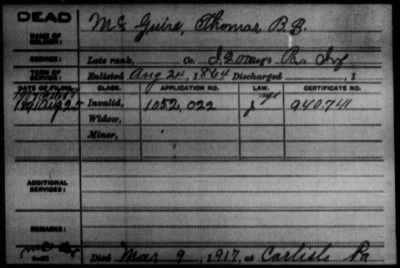 DEAD
NAME OF SOLDIER:
Mc Guire, Thomas B. B.
SERVICE:
Late rank, Co. I, 201 Reg't Pa. Inf
TERM OF SERVICE:
Enlisted Aug 24, 1864 Discharged , 1
DATE OF FILING. CLASS. APPLICATION NO. LAW. CERTIFICATE NO.
1891 Aug 25 Invalid, 1052,022 940,741
Widow,
Minor,
ADDITIONAL SERVICES:
REMARKS:
Died Mar 9, 1917, at Carlisle Pa